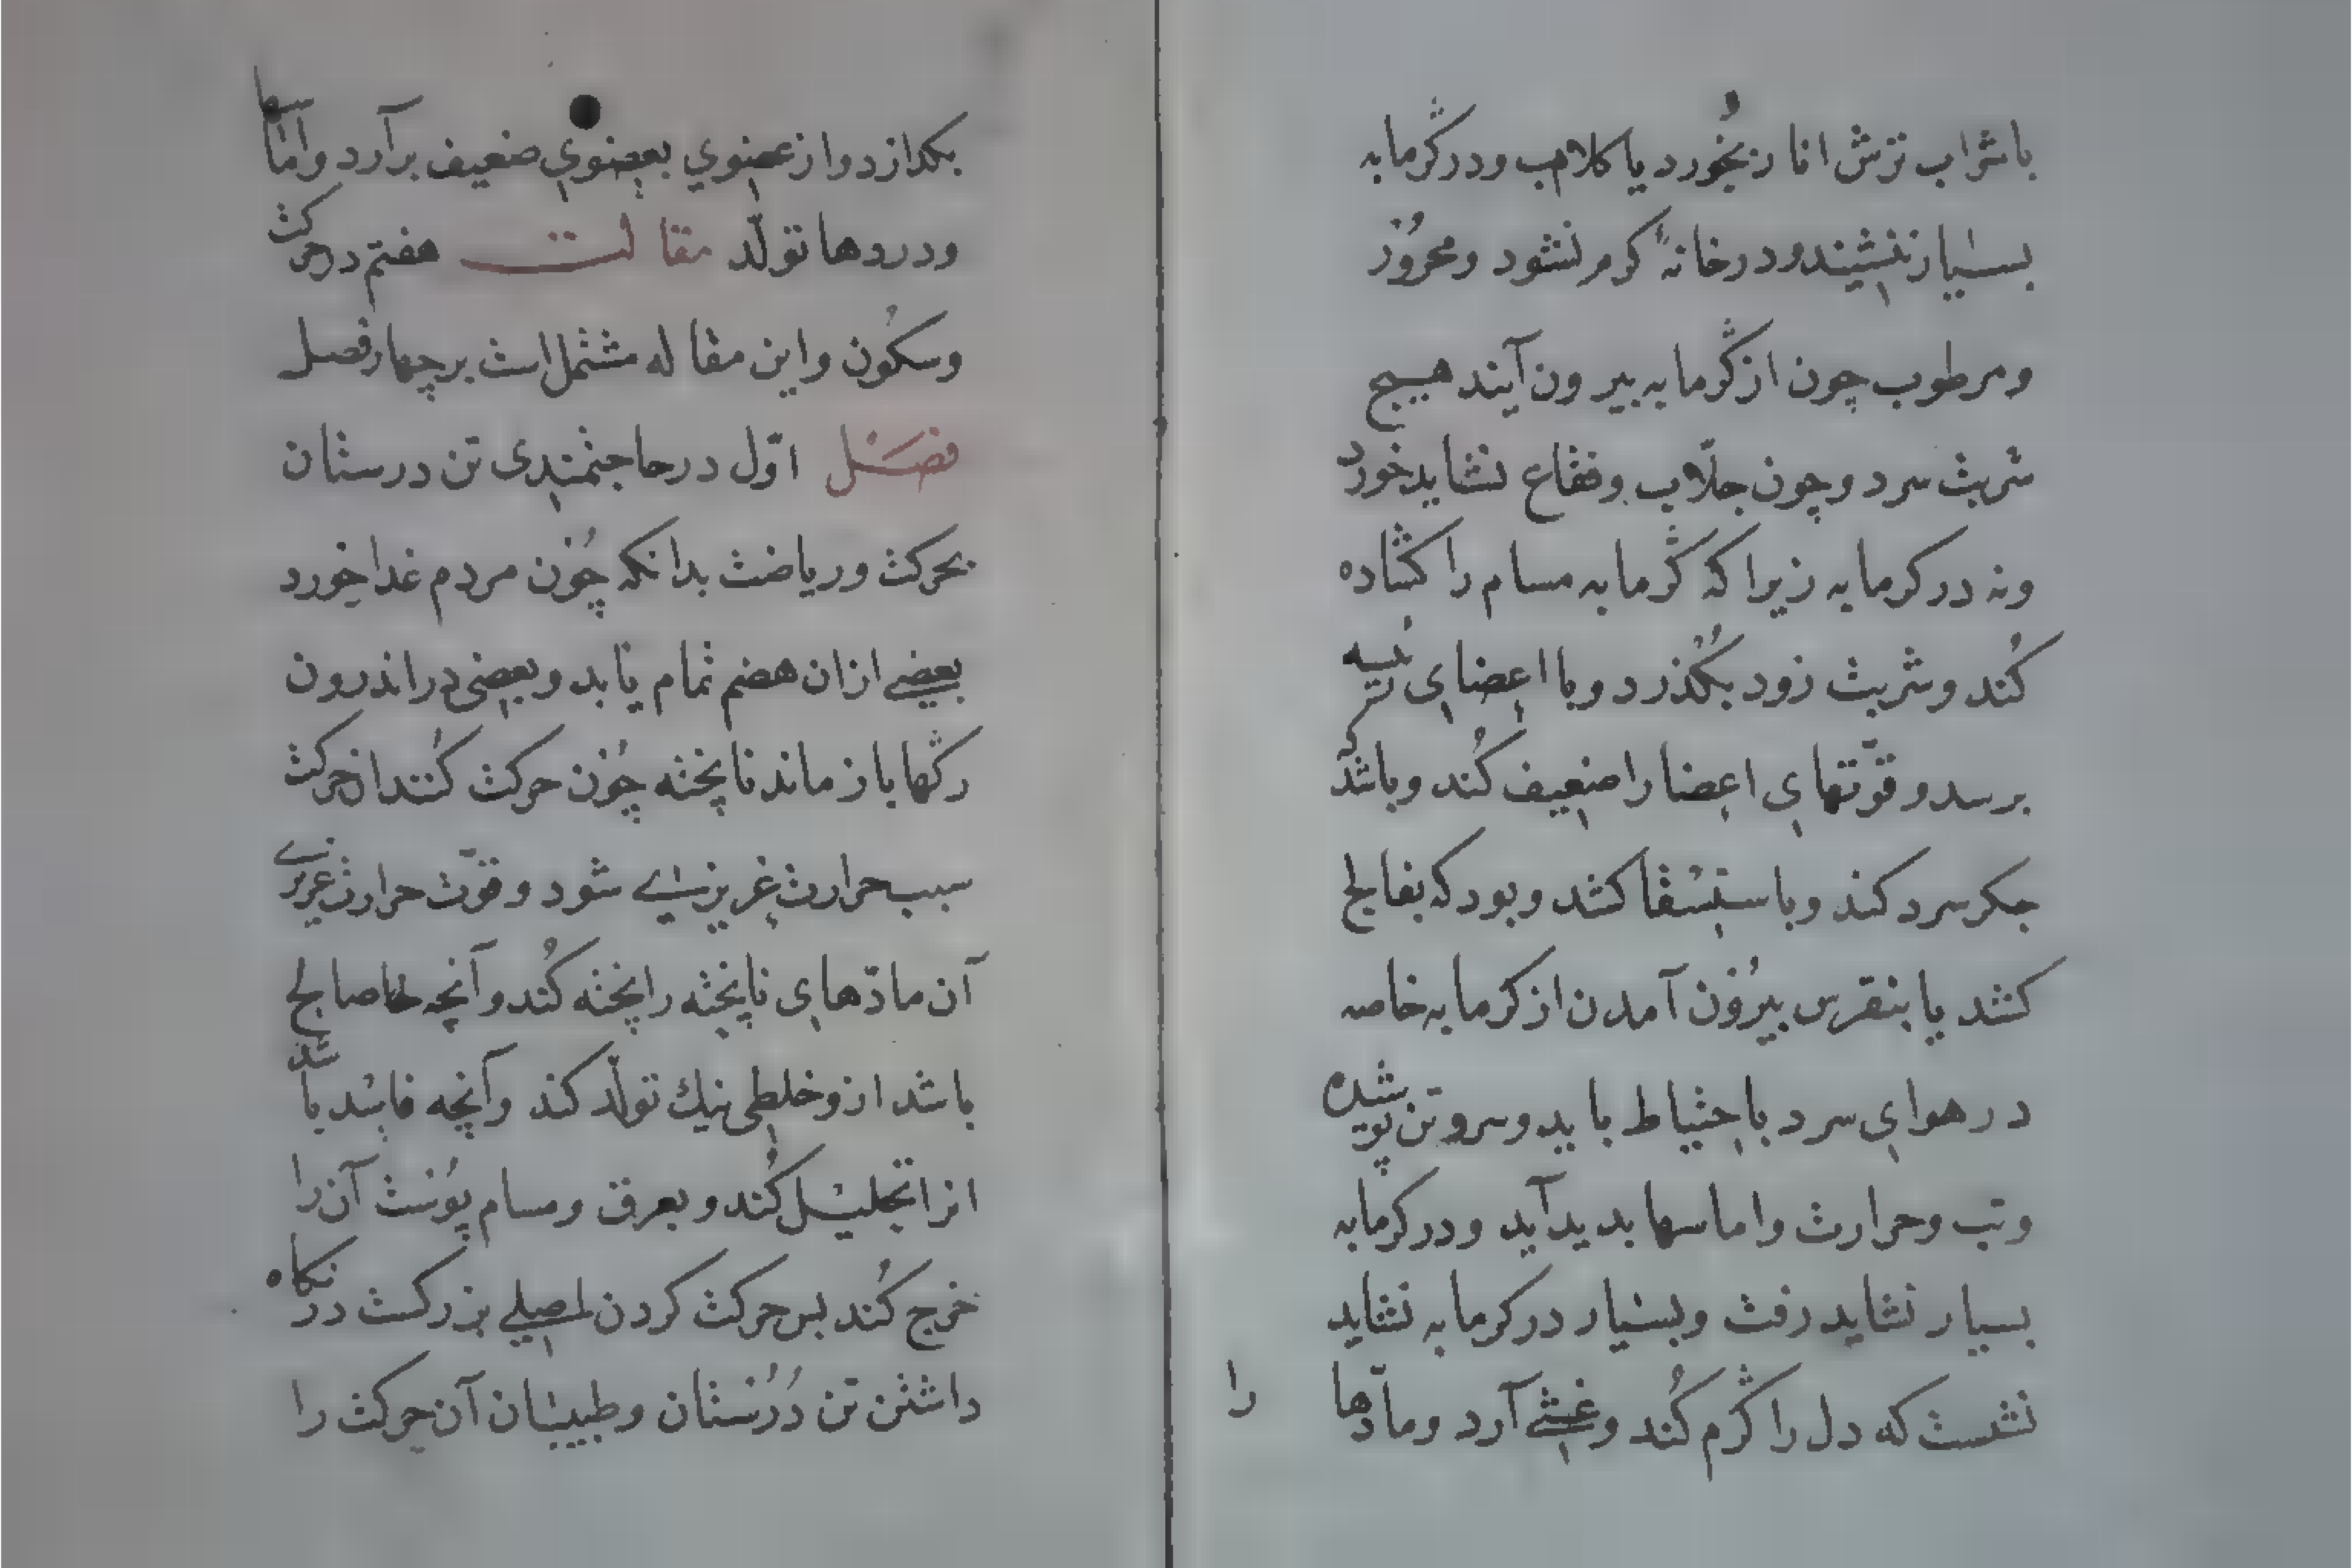 با شراب ترش انار بخورد یا کلاب و در گرمابه
بسیار ننشیند و در خانهٔ کرم نشود و محرور
و مرطوب چون از گرمابه بیرون آیند هیچ
شربت سرد و چون جلّاب و فقاع نشاید خورد
و نه در کرمابه زیرا که گرمابه مسام را کشاده
کُند و شربت زود بکذرد و با اعضای
برسد و قوّتهای اعضا را ضعیف کُند و باشد که
جکر سرد کند و باستسقا کشد و بود که بفالج
کشد یا بنقرس بیرُون آمدن از کرمابه خاصه
در هوای سرد با احتیاط باید و سر و تن پوشیده
و تب و حرارت و اماسها بدید آید و در کرمابه
بسیار نشاید رفت و بسیار در کرمابه نشاید
نشست که دل را گرم کُند و غشی آرد و مادّها
را
بکدازد و از عضوی بعضوی ضعیف برآرد و اماسها
و دردها تولّد مقالت هفتم در حرکت
و سکُون و این مقاله مشتمل است بر چهار فصل
فصَل اوّل در حاجتمندی تن درستان
بحرکت و ریاضت بدانکه چُون مردم غدا خورد
بعضی ازان هضم تمام یابد و بعضی در اندرون
رگها باز ماند ناپخته چُون حرکت کُنند از حرکت
سبب حرارت غریزی شود و قوّت حرارت غریزی
آن مادّهای ناپخته را پخته کُند و آنچه صالح
باشد ازو خلطی نیک تولّد کند و آنچه فاسد باشد
انرا تحلیل کُند و بعرق و مسام پُوست آن را
خرج کُند بس حرکت کردن اصلی بزرکست در نکاه
داشتن تن دُرُستان و طبیبان آن حرکت را